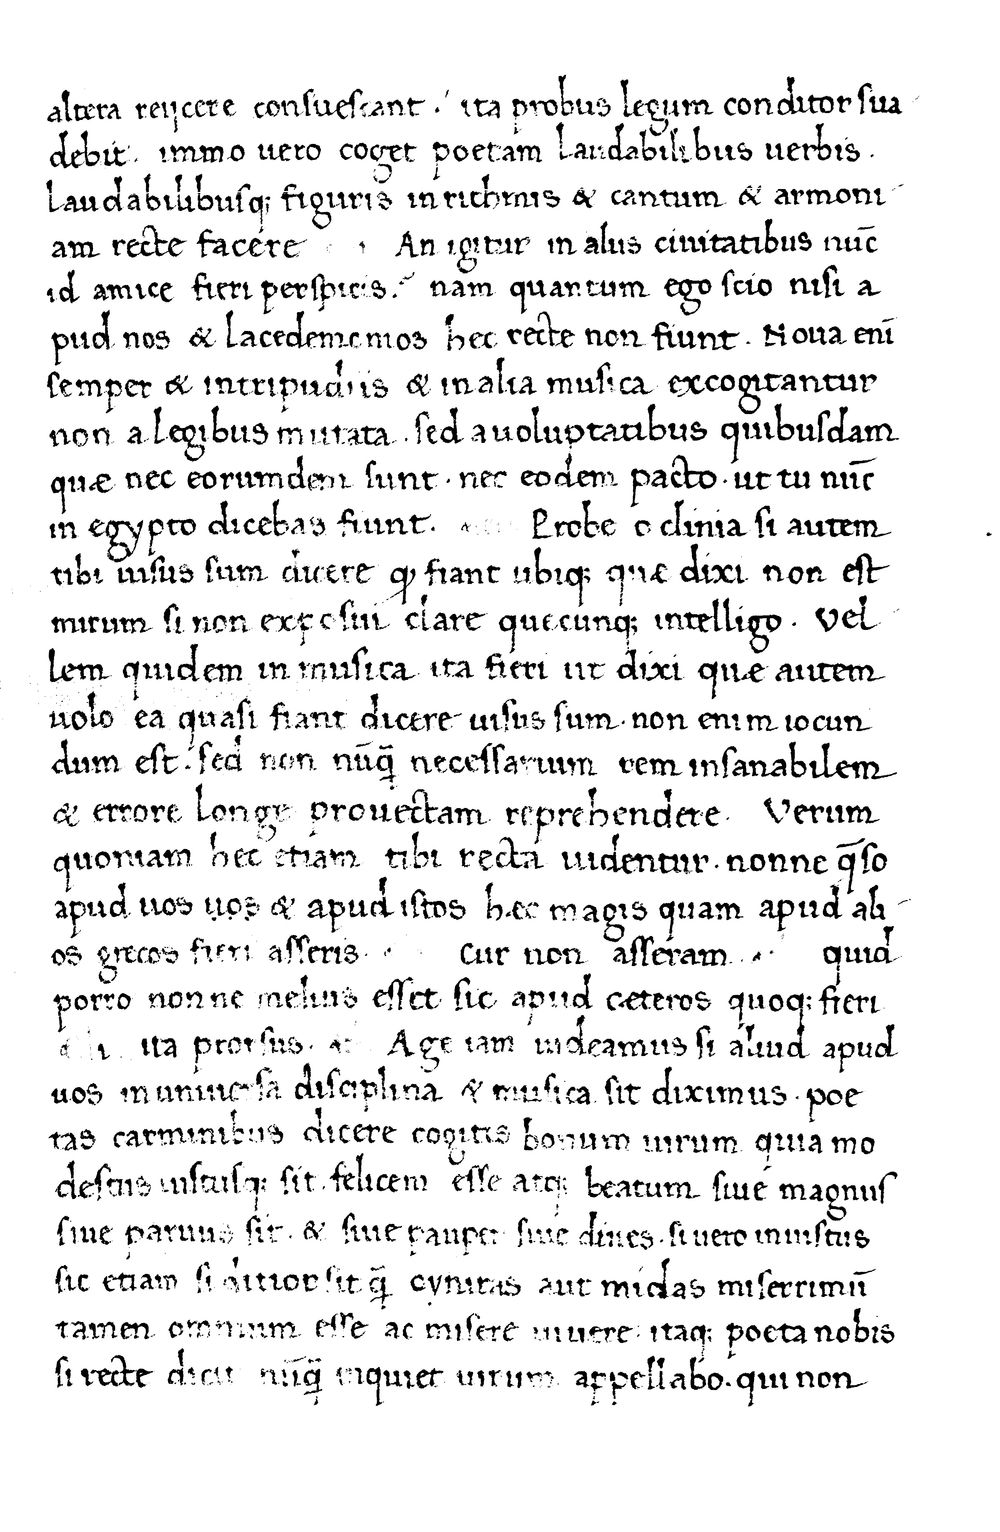 altera reijcere consuescant. ita probus legum conditor sua
debit. immo uero coget poetam laudabilibus uerbis.
laudabilibusq; figuris in rithmis & cantum & armoni
am recte facere An igitur in aliis ciuitatibus nūc
id amice fieri perspicis. nam quantum ego scio nisi a
pud nos & lacedemonios hec recte non fiunt. Noua eni̅
semper & in tripudiis & in alia musica excogitantur
non a legibus mutata. sed a uoluptatibus quibusdam
quæ nec eorumdem sunt. nec eodem pacto. ut tu nūc
in egypto dicebas fiunt. Probe o clinia si autem
tibi uisus sum dicere ꝙ fiant ubiq; quæ dixi non est
mirum si non exposui clare quecunq; intelligo. Vel
lem quidem in musica ita fieri ut dixi quæ autem
uolo ea quasi fiant dicere uisus sum. non enim iocun
dum est. sed non nūq̄ necessarium rem insanabilem
& errore longe prouectam reprehendere. Verum
quoniam hec etiam tibi recta uidentur. nonne q̄so
apud uos & apud istos hec magis quam apud ali
os grecos fieri asseris. Cur non asseram quid
porro nonne melius esset sic apud cæteros quoq; fieri
ita prorsus. Age iam uideamus si aliud apud
uos in uniuersa disciplina & musica sit diximus. poe
tas carminibus dicere cogitis bonum uirum quia mo
destus iustusq; sit. felicem esse atq; beatum siue magnus
siue paruus sit. & siue pauper siue diues. si uero iniustus
sic etiam si ditior sit q̄ cyniras aut midas miserrimū
tamen omnium esse ac misere uiuere. itaq; poeta nobis
si recte dicit nūq̄ inquiet uirum appellabo. qui non